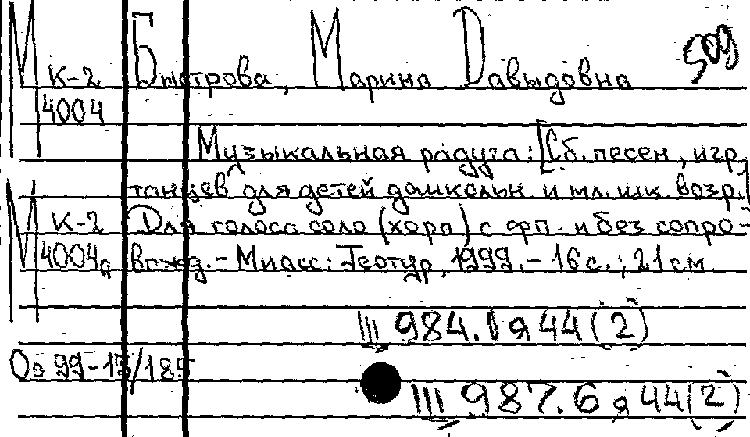 М К-2 Быстрова, Марина Давыдовна 509
4004
Музыкальная радуга: [Сб. песен, игр,
танцев для детей дошкольн. и мл. шк. возр.]
М К-2 Для голоса соло (хора) с фп. и без сопро-
4004а вожд. - Миасс: Геотур, 1999. - 16 с.; 21 см.
III 984.1 я 44 (2)
Оо 99-13/185
III 987.6 я 44(2)